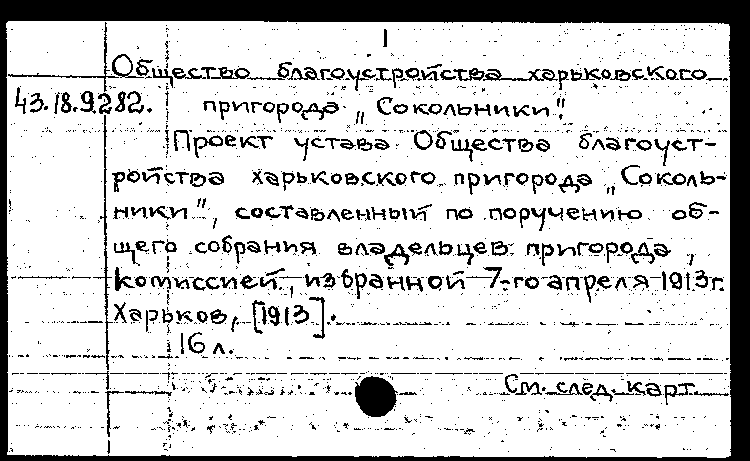 1
Общество благоустройства харьковского
43.18.9.282. пригорода „Сокольники".
Проект устава Общества благоуст-
ройства харьковского пригорода „Соколь-
ники", составленный по поручению об-
щего собрания владельцев пригорода,
комиссией, избранной 7-го апреля 1913г.
Харьков, [1913].
16 л.
См. след. карт.